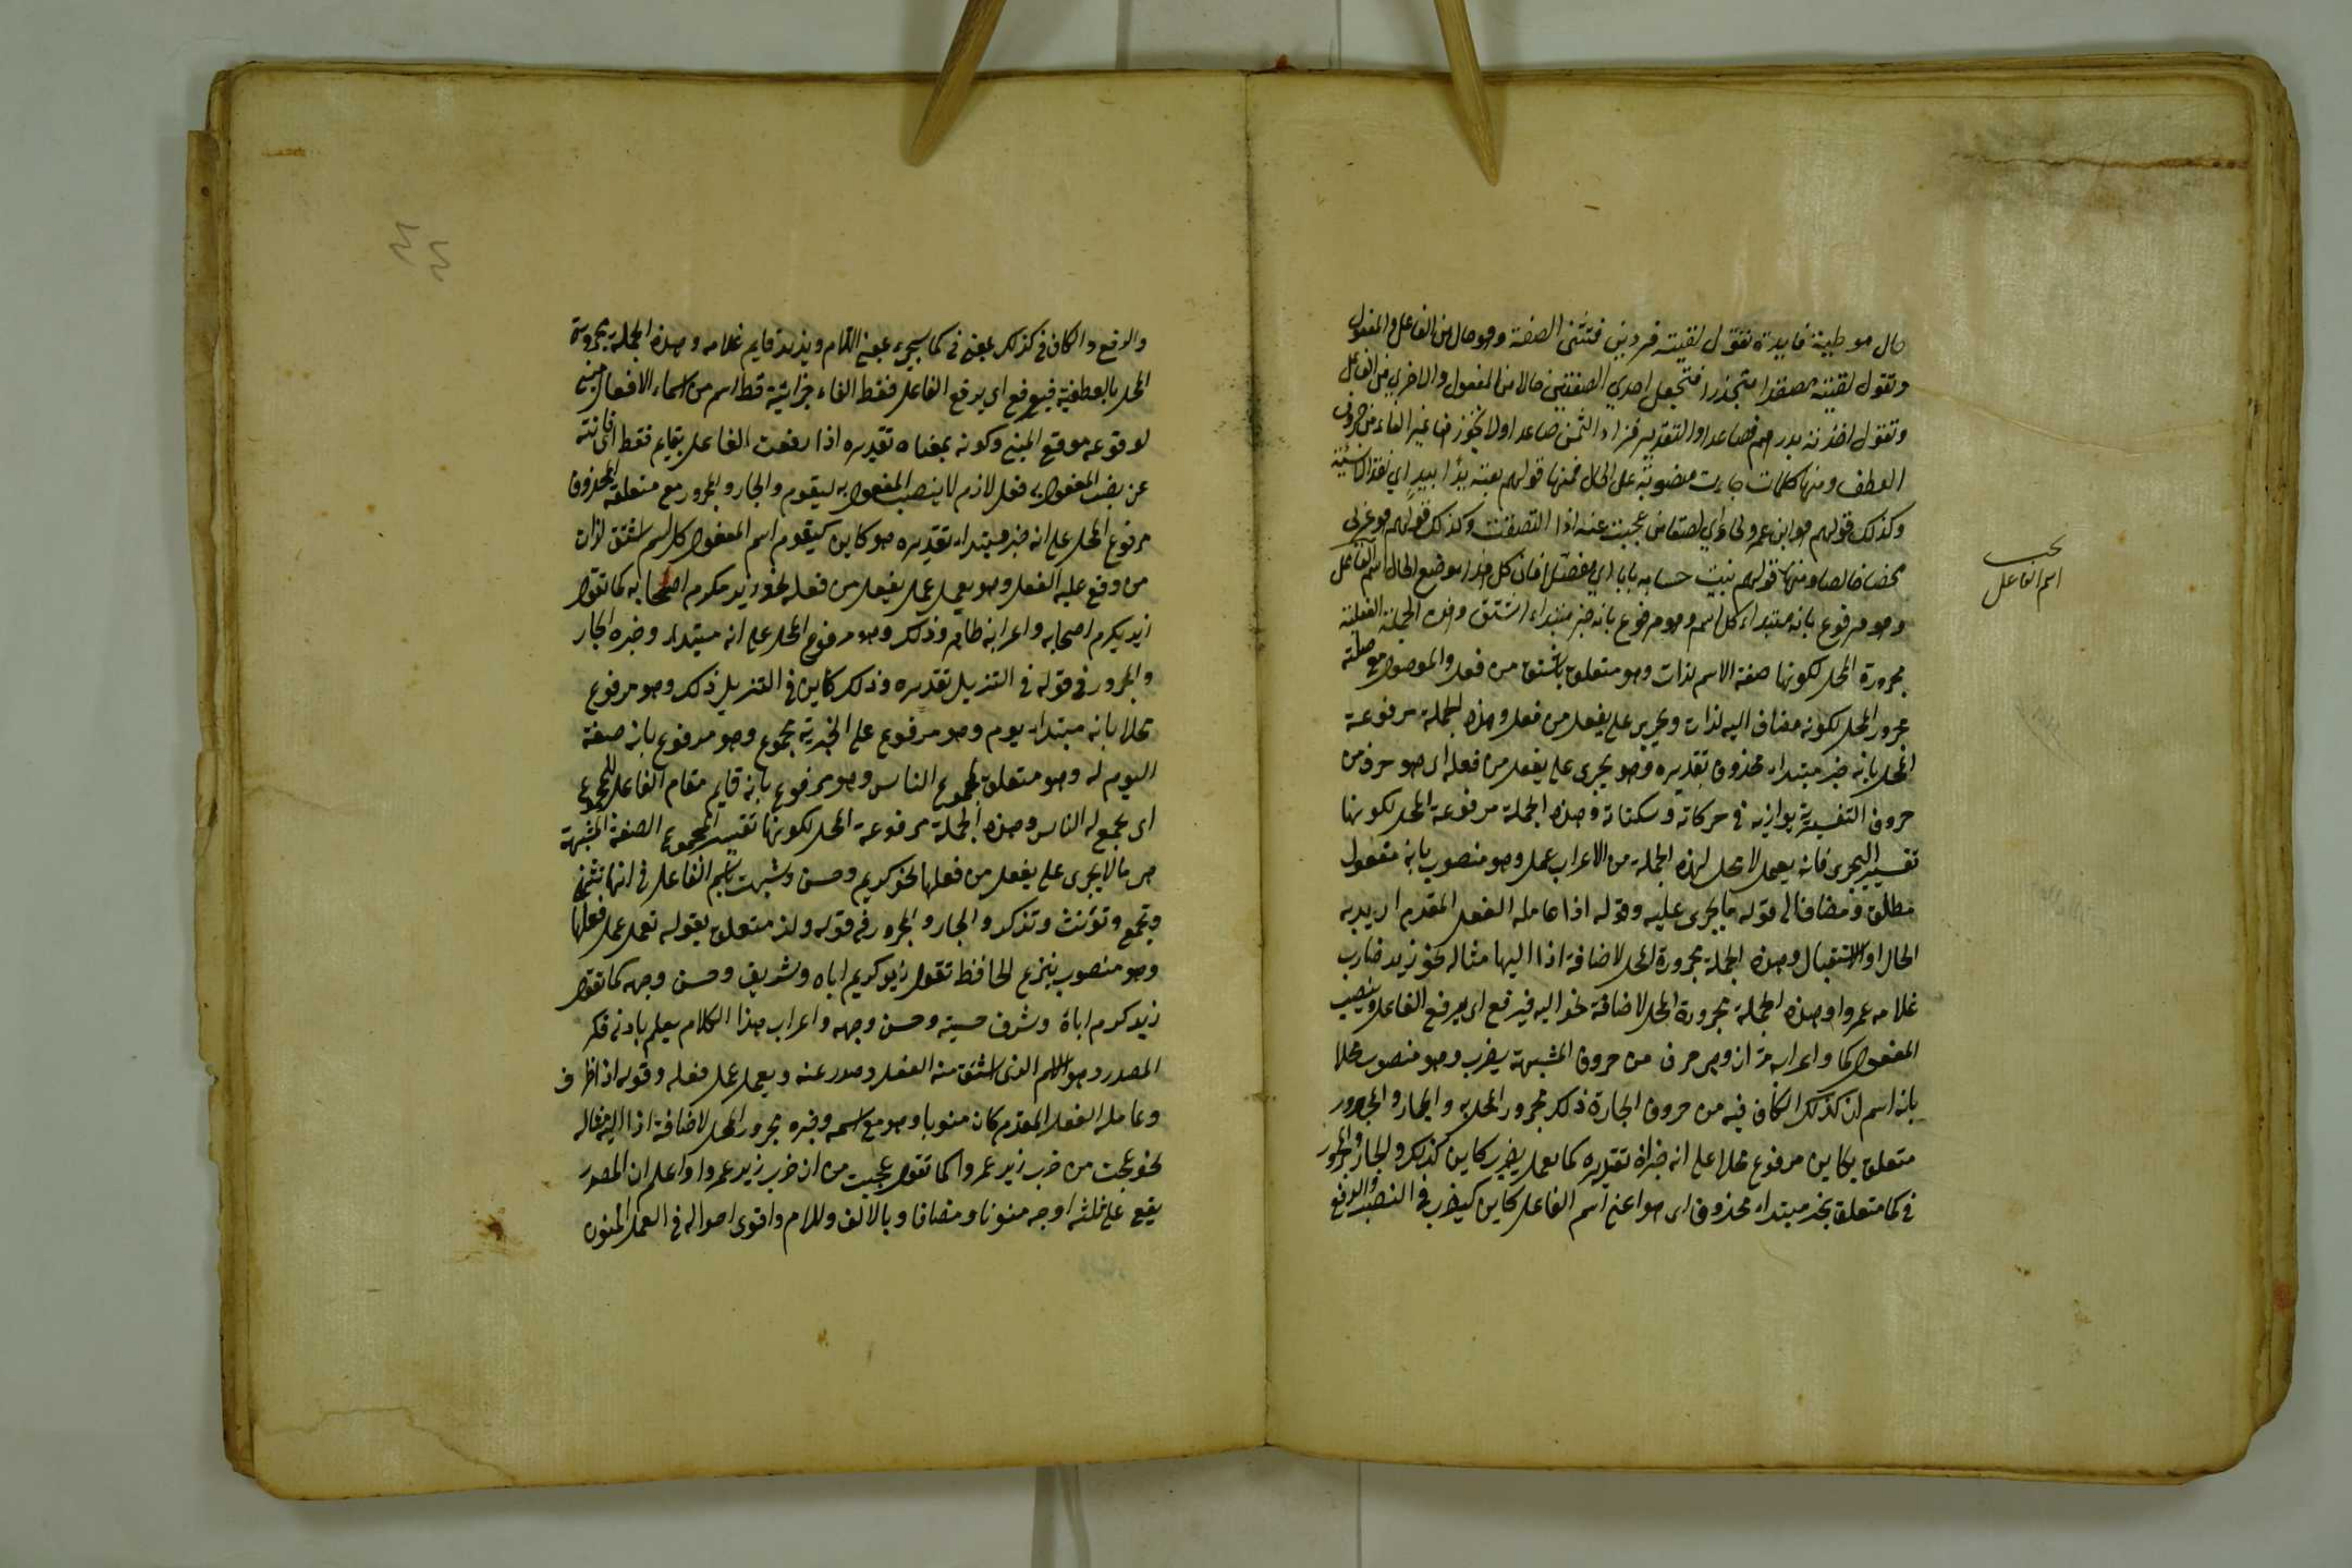 حال موطية فايدة تقول لقيته فردين فتثنى الصفة وهو حال من الفاعل والمفعول
وتقول لقيته مصعدا منحدرا فتجعل احدي الصفتين حالا من المفعول والاخري من الفاعل
وتقول اخذته بدرهم فصاعدا والتقدير فزاد الثمن صاعدا ولا يجوز هنا غير الفاء من حروف
العطف ومنها كلمات جاءت منصوبة على الحال فمنها قولهم بعته يدًا بيدٍ اي نقدا
وكذلك قولهم هو ابن عمه لحا اي لصقا من عجبت عنه اذا التصقت وكذلك قولهم هو عربي
محضا خالصا ومنها قولهم بينت حسابه بابا اي مفصّلا فان كل هذا موضع الحال اسم الفاعل
وهو مرفوع بانه مبتداء كل اسم وهو مرفوع بانه خبر مبتداء اشتق وهذه الجملة الفعلية
مجرورة المحل لكونها صفة الاسم لذات وهو متعلق باشتق من فعل والموصول مع صلته
مجرور المحل لكونه مضاف اليه لذات ويجري على يفعل من فعله وهذه الجملة مرفوعة
المحل بانه خبر مبتداء محذوف تقديره وهو يجري على يفعل من فعله اي هو حرف من
حروف التفسيرية يوازيه في حركاته وسكناته وهذه الجملة مرفوعة المحل لكونها
تفسير اليجري فانه يعمل لا محل لهذه الجملة من الاعراب عمل وهو منصوب بانه مفعول
مطلق ومضاف الى قوله ما يجري عليه وقوله اذا عامله الفعل المقدم اريد به
الحال او الاستقبال وهذه الجملة مجرورة المحل لاضافة اذا اليها مثاله نحو زيد ضارب
غلامه عمروا وهذه الجملة مجرورة المحل لاضافة نحو اليه فيرفع اي يرفع الفاعل وينصب
المفعول كما واعرابه مر ان وهي حرف من حروف المشبهة يضرب وهو منصوب محلا
بانه اسم ان كذلك الكاف فيه من حروف الجارة ذلك مجرور المحل به والجار والمجرور
متعلق بكاين مرفوع محلا على انه خبر ان تقديره كما يعمل يضرب كاين كذلك والجار والمجرور
في كما متعلق بخبر مبتداء محذوف اي هو اعني اسم الفاعل كاين كيضرب في النصب والرفع
بحث
اسم الفاعل
والرفع والكاف في كذلك بمعنى في كما سيجيء بمعنى اللام وزيد قايم غلامه وهذه الجملة مجرورة
المحل بالعطفية فيرفع اي يرفع الفاعل فقط الفاء جزائية قط اسم من اسماء الافعال مبني
لوقوعه موقع المبني وكونه بمعناه تقديره اذا رفعت الفاعل بقايم فقط اي فانته
عن نصب المفعول به فعل لازم لا ينصب المفعول به ليقوم والجار والمجرور مع متعلقه المحذوف
مرفوع المحل على انه خبر مبتداء تقديره هو كاين كيقوم اسم المفعول كل اسم اشتق لذات
من وقع عليه الفعل وهو يعمل عمل يفعل من فعله نحو زيد مكرم اصحابه كما تقول
زيد يكرم اصحابه واعرابه ظاهر وذلك وهو مرفوع المحل على انه مبتداء وخبره الجار
والمجرور في قوله في التنزيل تقديره وذلك كاين في التنزيل ذلك وهو مرفوع
محلا بانه مبتداء يوم وهو مرفوع على الخبرية مجموع وهو مرفوع بانه صفة
اليوم له وهو متعلق بمجموع الناس وهو مرفوع بانه قايم مقام الفاعل للمجموع
اي يجمع له الناس وهذه الجملة مرفوعة المحل لكونها تفسير المجموع الصفة المشبهة
هي ما لا يجري على يفعل من فعلها نحو كريم وحسن وشبهت باسم الفاعل في انها تثنى
وتجمع وتؤنث وتذكر والجار والمجرور في قوله ولذ متعلق بقوله تعمل عمل فعلها
وهو منصوب بنزع الخافظ تقول زيد كريم اباه وشريف وحسن وجهه كما تقول
زيد كرم اباه وشرف حسبه وحسن وجهه واعراب هذا الكلام يعلم بادنى فكر
المصدر وهو الاسم الذي اشتق منه الفعل وصدر عنه ويعمل عمل فعله وقوله اذا ظرف
وعامله الفعل المقدم كان منونا وهو مع اسمه وخبره مجرور المحل لاضافة اذا اليه مثاله
نحو عجبت من ضرب زيد عمروا كما تقول عجبت من ان ضرب زيد عمروا واعلم ان المصدر
يقع على ثلثه اوجه منونا ومضافا وبالالف واللام واقوى احواله في العمل المنون